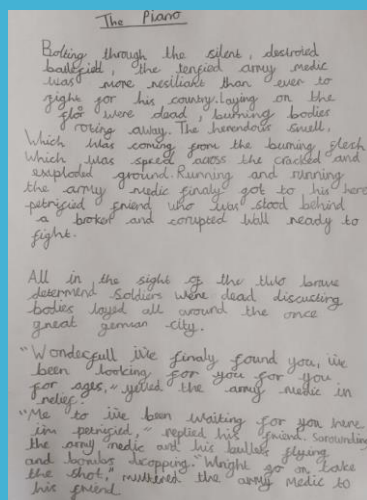 The Piano
Bolting through the silent, destroied
battlefield, the terified army medic
was more resiliant than ever to
fight for his country. Laying on the
flor were dead, burning bodies
roting away. The horendous smell.
Which was coming from the burning flesh
which was spred across the cracked and
exsploded ground. Running and running
the army medic finaly got to his here
petrified friend who was stood behind
a broken and corupted wall ready to
fight.
All in the sight of the two brave
determend soldiers were dead discusting
bodies layed all around the once
great german city.
"Wonderfull iv'e finaly found you, iv'e
been looking for you for you
for ages," yelled the army medic in
relief.
"Me to iv'e been waiting for you here
im petrified," replied his friend. Sorounding
the army medic and his bullets flying
and bombs dropping. "Wright go on take
the shot," muttered the army medic to
his friend